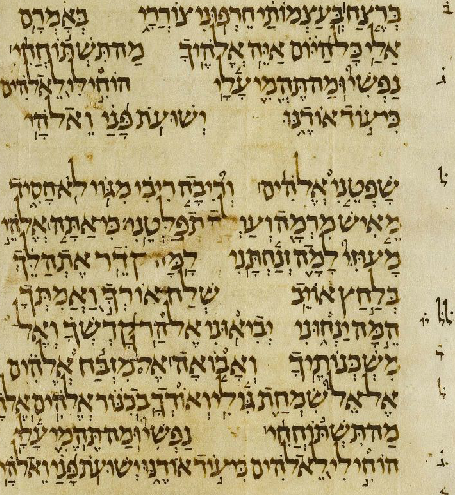 בְּרֶצַח בְּעַצְמוֹתַי חֵרְפוּנִי צוֹרְרָי בְּאָמְרָם
אֵלַי כָּל־הַיּוֹם אַיֵּה אֱלֹהֶיךָ מַה־תִּשְׁתּוֹחֲחִי
נַפְשִׁי וּמַה־תֶּהֱמִי עָלָי הוֹחִילִי לֵאלֹהִים
כִּי־עוֹד אוֹדֶנּוּ יְשׁוּעֹת פָּנַי וֵאלֹהָי
שָׁפְטֵנִי אֱלֹהִים וְרִיבָה רִיבִי מִגּוֹי לֹא־חָסִיד
מֵאִישׁ מִרְמָה תְפַלְּטֵנִי כִּי־אַתָּה אֱלֹהֵי
מָעוּזִּי לָמָה זְנַחְתָּנִי קֹדֵר אֶתְהַלֵּךְ
בְּלַחַץ אוֹיֵב שְׁלַח־אוֹרְךָ וַאֲמִתְּךָ
הֵמָּה יַנְחוּנִי יְבִיאוּנִי אֶל־הַר־קָדְשְׁךָ וְאֶל
מִשְׁכְּנוֹתֶיךָ וְאָבוֹאָה אֶל־מִזְבַּח אֱלֹהִים
אֶל־אֵל שִׂמְחַת גִּילִי וְאוֹדְךָ בְכִנּוֹר אֱלֹהִים אֱלֹהָי
מַה־תִּשְׁתּוֹחֲחִי נַפְשִׁי וּמַה־תֶּהֱמִי עָלָי
הוֹחִילִי לֵאלֹהִים כִּי־עוֹד אוֹדֶנּוּ יְשׁוּעֹת פָּנַי וֵאלֹהָי